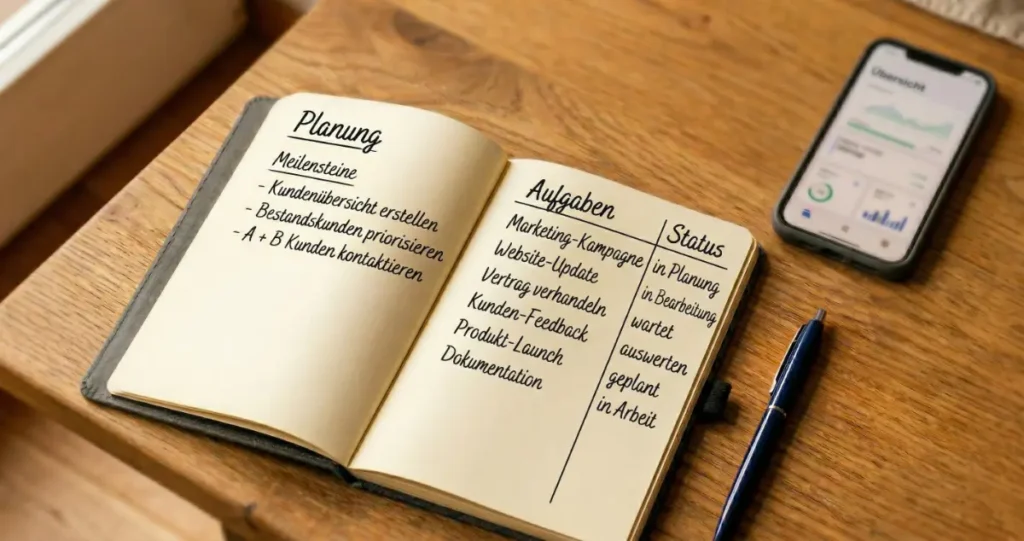 Planung
Meilensteine
- Kundenübersicht erstellen
- Bestandskunden priorisieren
- A + B Kunden kontaktieren
Aufgaben | Status
Marketing-Kampagne | in Planung
Website-Update | in Bearbeitung
Vertrag verhandeln | wartet
Kunden-Feedback | auswerten
Produkt-Launch | geplant
Dokumentation | in Arbeit
Übersicht